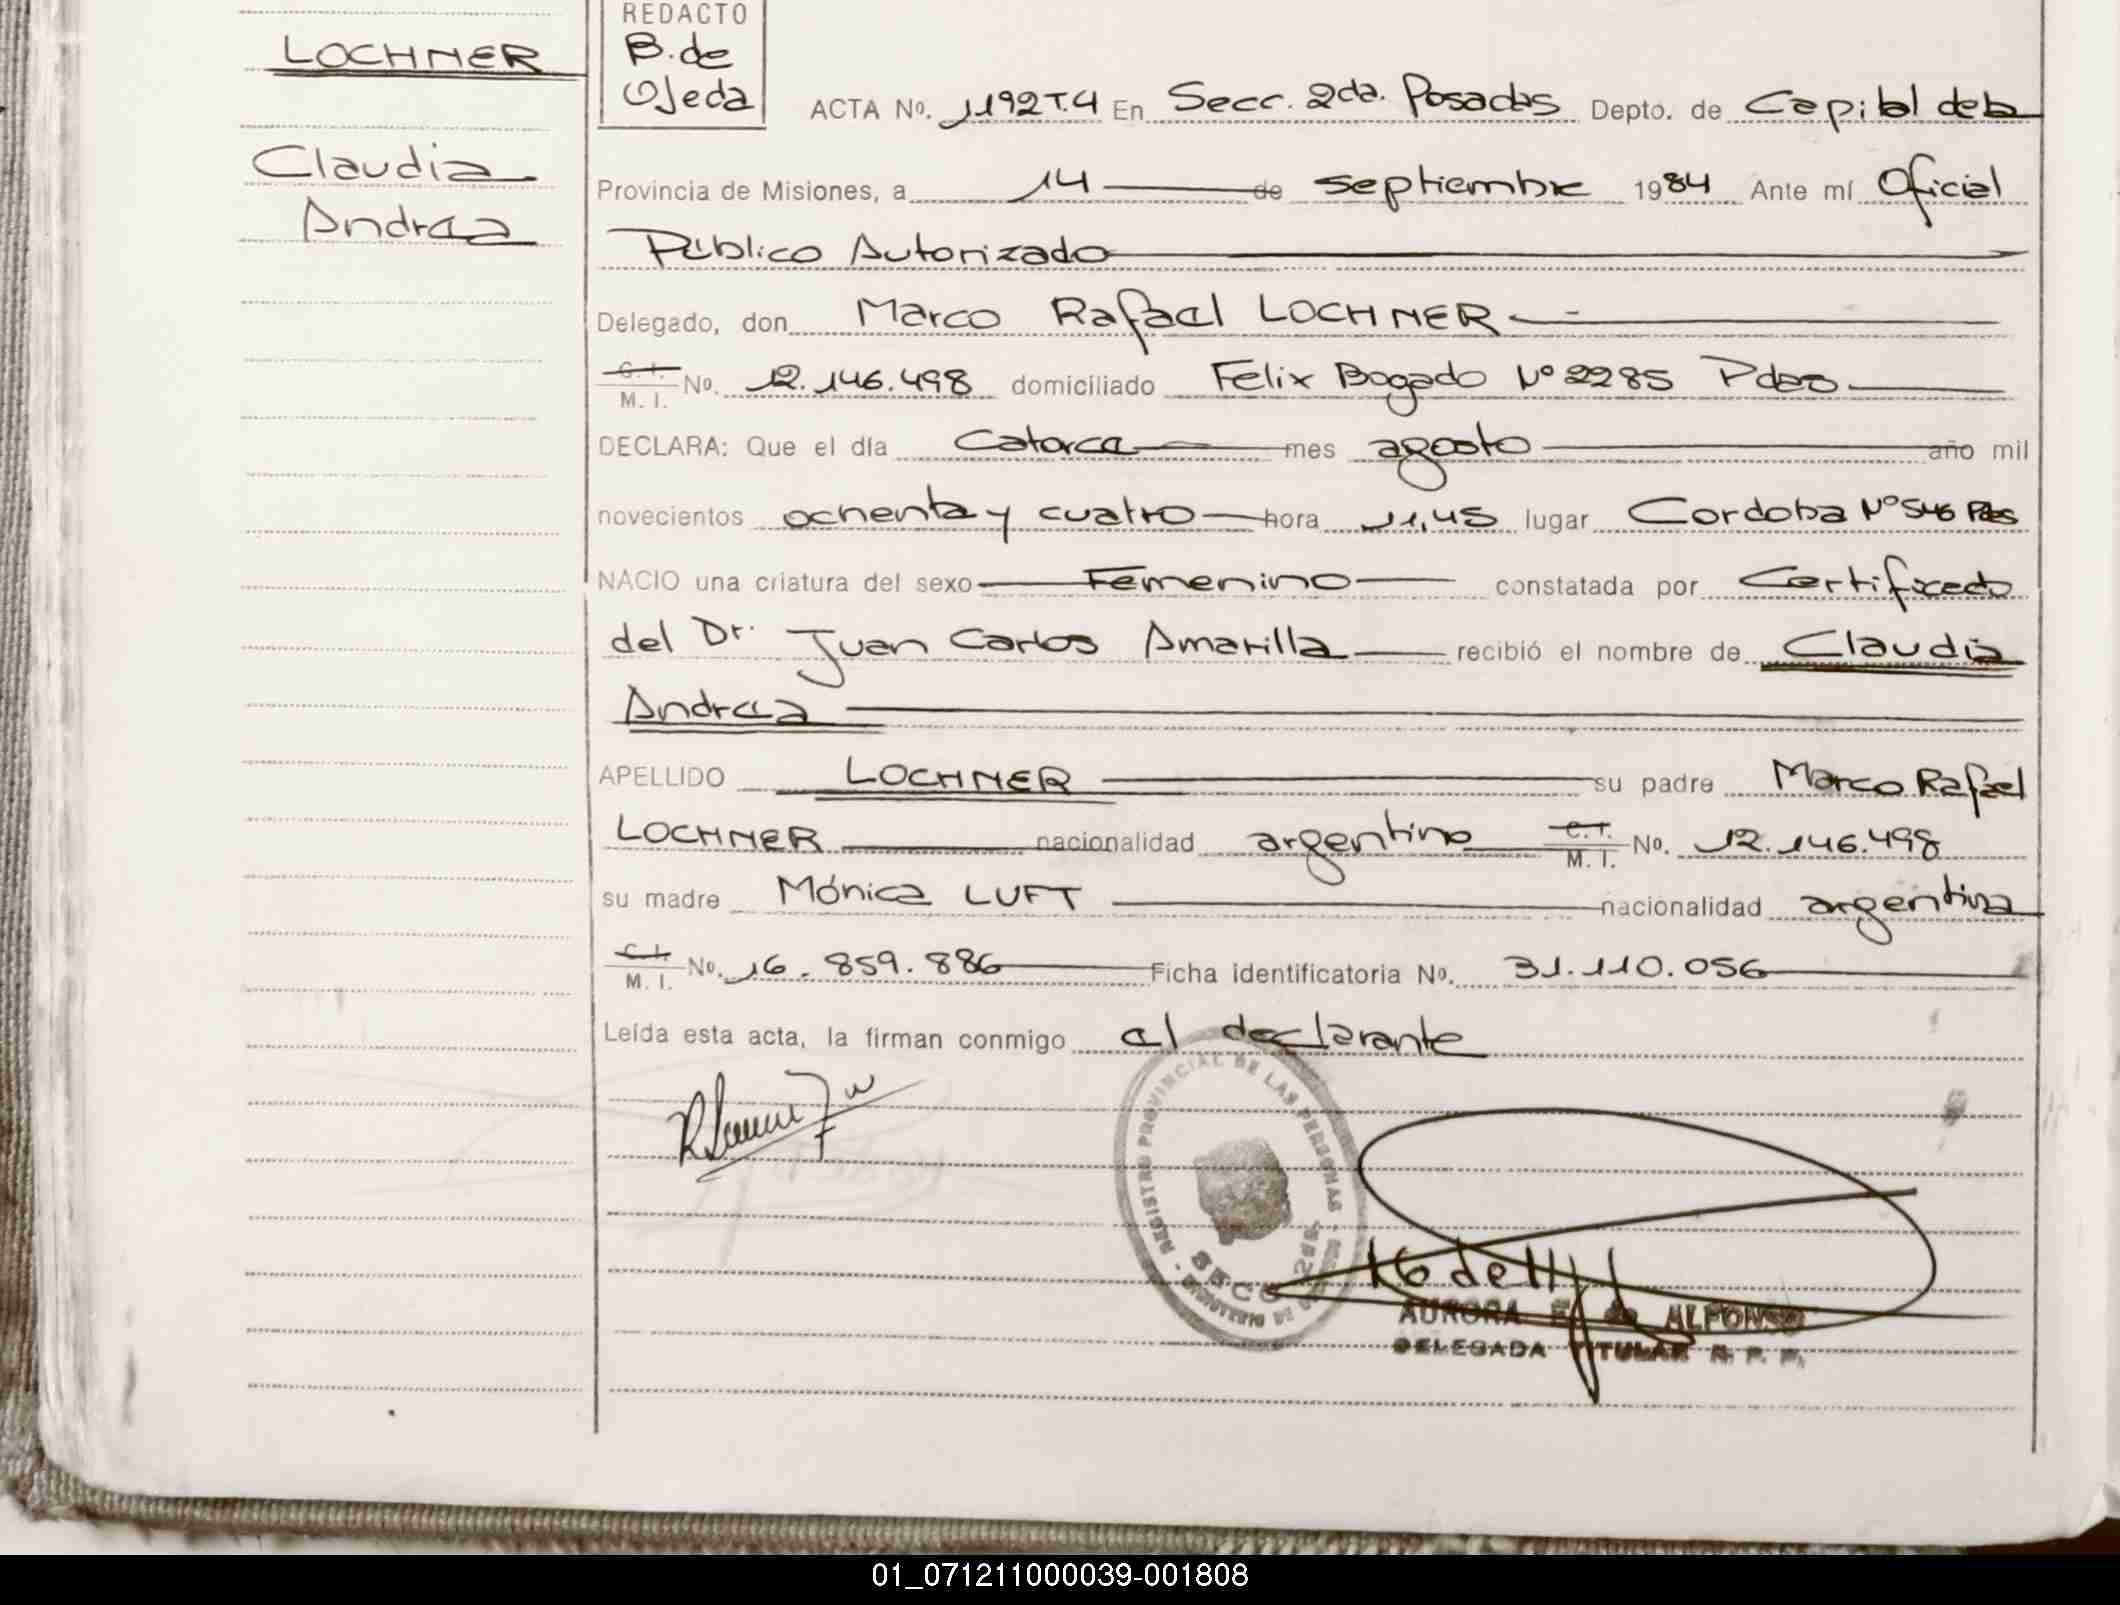 LOCHNER
Claudia
Andrea
REDACTO
B. de
Ojeda
ACTA No. 1192 T.4 En Secc. 2da. Posadas Depto. de Capital de la
Provincia de Misiones, a 14 de septiembre 1984 Ante mí Oficial
Público Autorizado
Delegado, don Marco Rafael LOCHNER
C. I. M. I. No. 12.146.498 domiciliado Felix Bogado Nº 2285 Pdas
DECLARA: Que el día Catorce mes agosto año mil
novecientos ochenta y cuatro hora 11,45 lugar Cordoba Nº 546 Pdas
NACIO una criatura del sexo Femenino constatada por Certificado
del Dr. Juan Carlos Amarilla recibió el nombre de Claudia
Andrea
APELLIDO LOCHNER su padre Marco Rafael
LOCHNER nacionalidad argentino C. I. M. I. No. 12.146.498
su madre Mónica LUFT nacionalidad argentina
C. I. M. I. No. 16.859.886 Ficha identificatoria No. 31.110.056
Leída esta acta, la firman conmigo el declarante
REGISTRO PROVINCIAL DE LAS PERSONAS
SECC 2da.
MINISTERIO DE
AURORA de ALFONSO
DELEGADA TITULAR R. P. P.
01_071211000039-001808